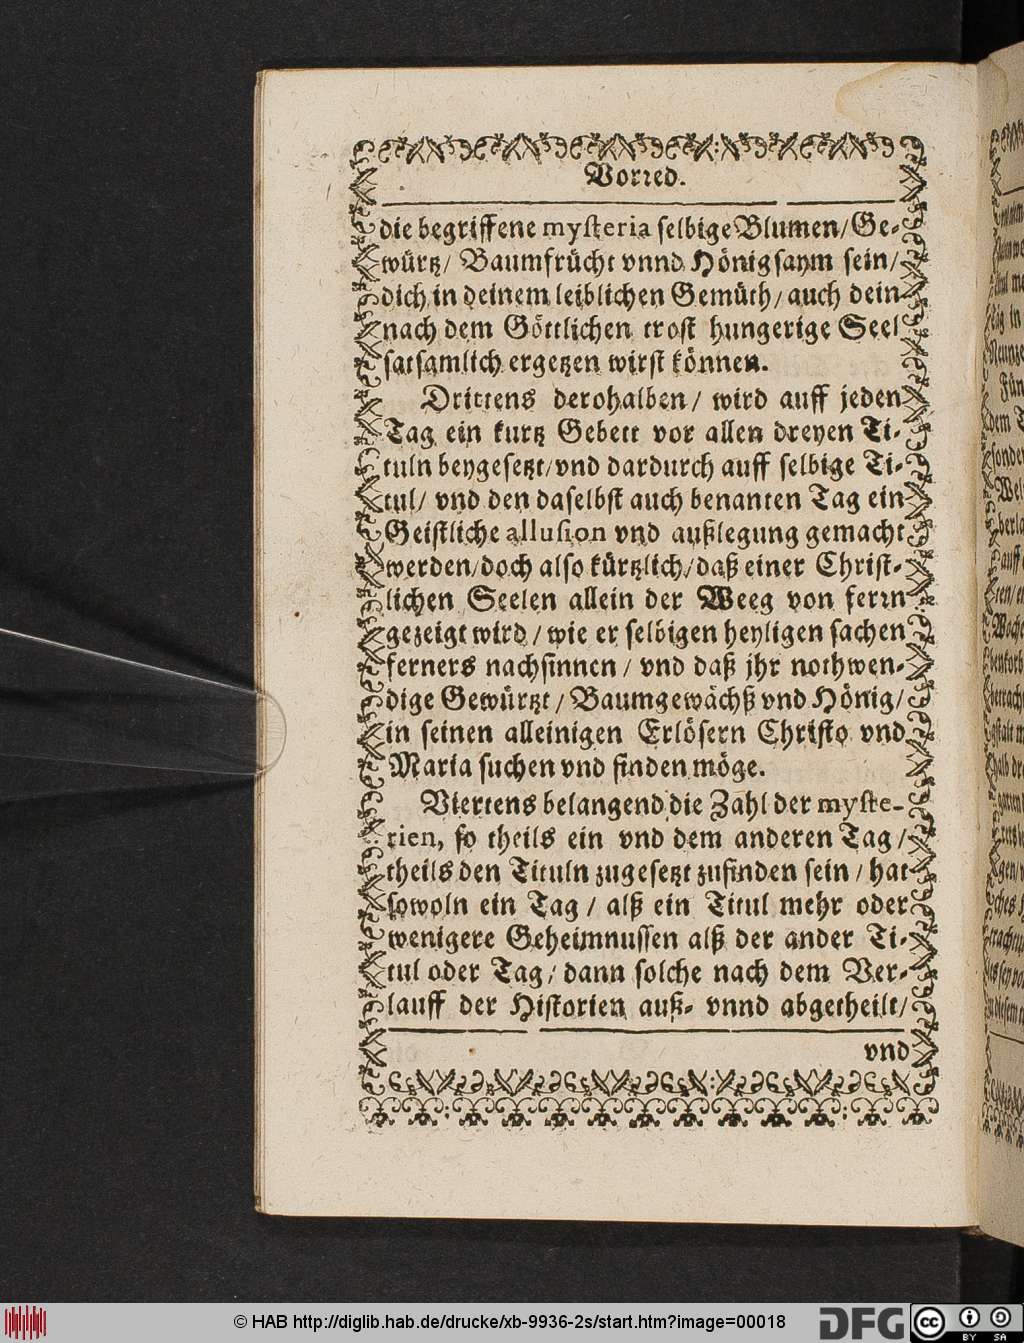 Vorred.
die begriffene mysteria selbige Blumen/ Ge-
würtz/ Baumfrücht vnnd Hönigsaym sein/
dich in deinem leiblichen Gemüth/ auch dein
nach dem Göttlichen trost hungerige Seel
satsamlich ergetzen wirst können.
Drittens derohalben/ wird auff jeden
Tag ein kurtz Gebett vor allen dreyen Ti-
tuln beygesetzt/ vnd dardurch auff selbige Ti-
tul/ vnd den daselbst auch benanten Tag ein
Geistliche allusion vnd außlegung gemacht
werden/ doch also kürtzlich/ daß einer Christ-
lichen Seelen allein der Weeg von ferrn
gezeigt wird/ wie er selbigen heyligen sachen
ferners nachsinnen/ vnd daß jhr nothwen-
dige Gewürtzt/ Baumgewächß vnd Hönig/
in seinen alleinigen Erlösern Christo vnd
Maria suchen vnd finden möge.
Viertens belangend die Zahl der myste-
rien, so theils ein vnd dem anderen Tag/
theils den Tituln zugesetzt zufinden sein/ hat
sowoln ein Tag/ alß ein Titul mehr oder
wenigere Geheimnussen alß der ander Ti-
tul oder Tag/ dann solche nach dem Ver-
lauff der Historien auß- vnnd abgetheilt/
vnd
© HAB http://diglib.hab.de/drucke/xb-9936-2s/start.htm?image=00018
DFG
cc
BY SA